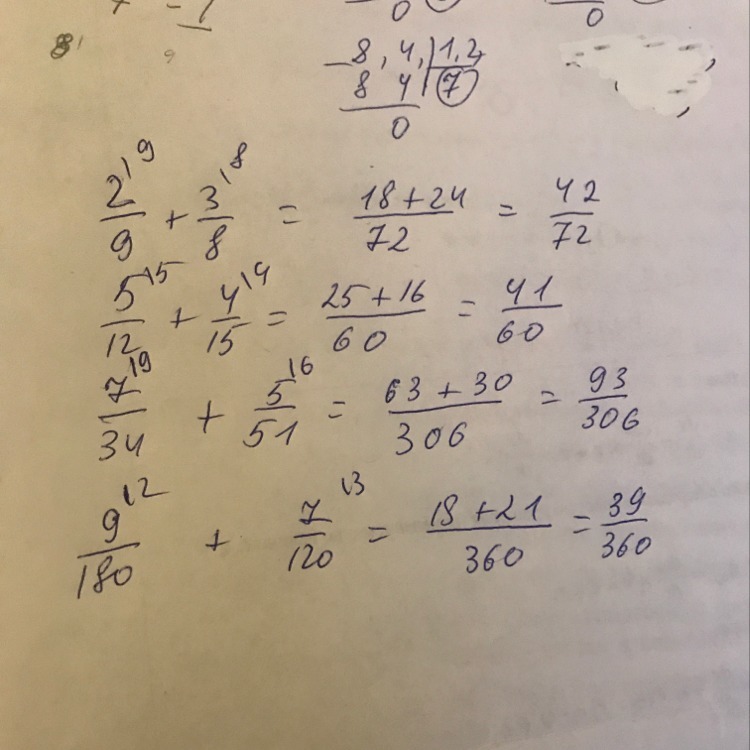 0 0
8,4, 1,2
8 4 7
0
2\9/9 + 3\8/8 = 18+24/72 = 42/72
5\5/12 + 4\4/15 = 25+16/60 = 41/60
7\9/34 + 5\6/51 = 63+30/306 = 93/306
9\2/180 + 7\3/120 = 18+21/360 = 39/360